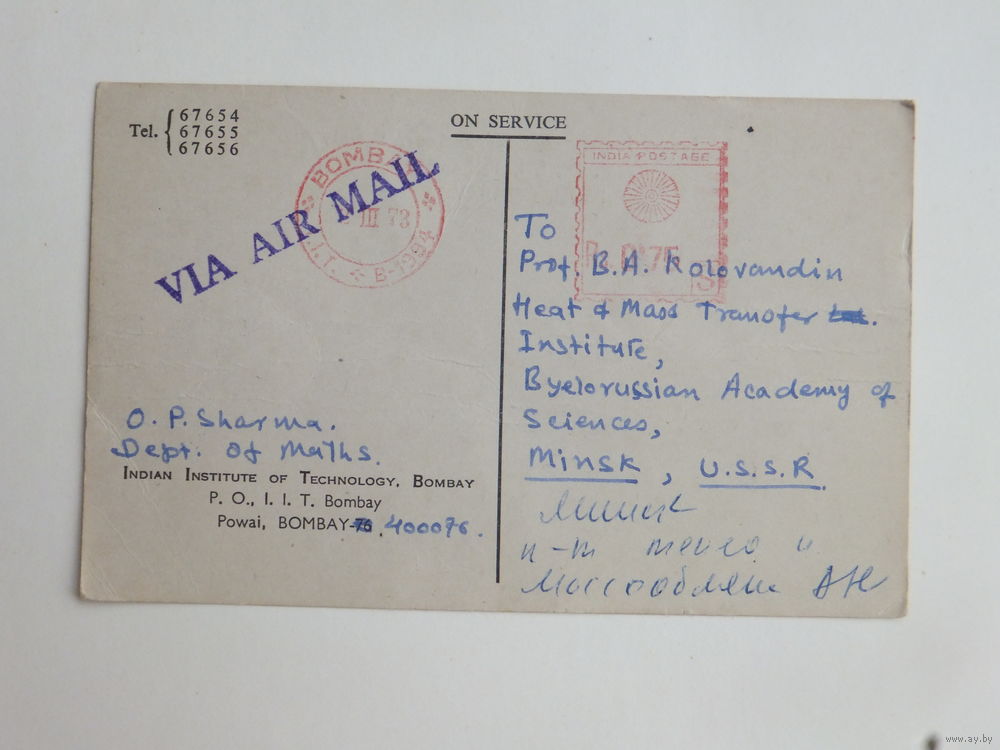 Tel.
67654
67655
67656
ON SERVICE
BOMBAY
III 73
I.I.T. B-1994
VIA AIR MAIL
INDIA POSTAGE
To
Prof. B.A. Kolovandin
Heat & Mass Transfer
Institute,
Byelorussian Academy of
Sciences,
Minsk, U.S.S.R.
Минск
и-т тепло и
Массообмена АН
O. P. Sharma.
Dept. of Maths.
INDIAN INSTITUTE OF TECHNOLOGY, BOMBAY
P. O., I. I. T. Bombay
Powai, BOMBAY-76. 400076.
www.ay.by